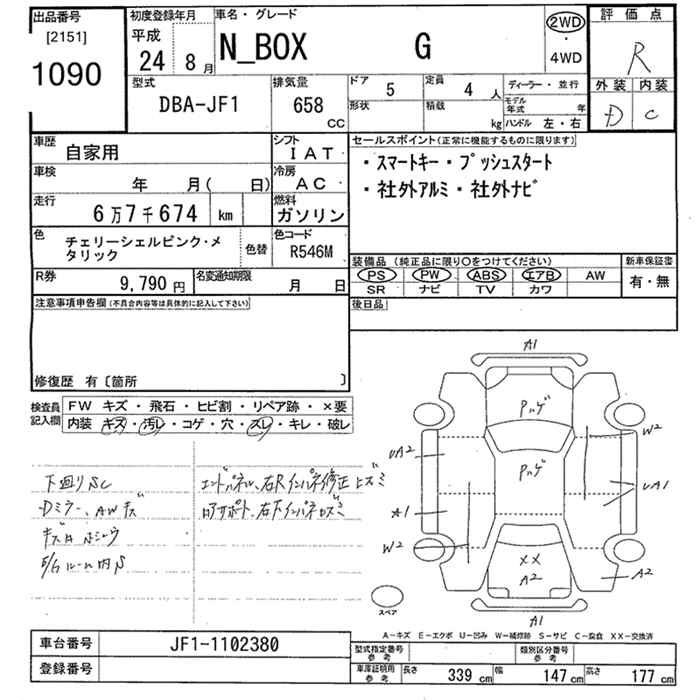 出品番号 [2151] 1090
初度登録年月 平成 24 8月
車名・グレード N_BOX G
2WD ・ 4WD
評価点 R
外装 内装
D C
型式 DBA-JF1
排気量 658 CC
ドア 5 定員 4 人
形状 積載 kg
ディーラー・並行
モデル年式 年
ハンドル 左・右
車歴 自家用
シフト IAT
車検 年 月( 日)
冷房 AC
走行 6万7千674 km
燃料 ガソリン
色 チェリーシェルピンク・メタリック
色替
色コード R546M
R券 9,790 円
名変通知期限 月 日
セールスポイント(正常に機能するものに限ります)
・スマートキー・プッシュスタート
・社外アルミ・社外ナビ
装備品 (純正品に限り○をつけてください)
新車保証書
PS PW ABS エアB AW
SR ナビ TV カワ
有・無
後日品
注意事項申告欄(不具合内容等は具体的に記入して下さい)
修復歴 有〔箇所 〕
検査員記入欄
FW キズ・飛石・ヒビ割・リペア跡・×要
内装 キズ・汚レ・コゲ・穴・スレ・キレ・破レ
下廻りSC
Dミラー、AWキズ
エンドパネル、右Rインパネ修正ヒズミ
A1
Pハゲ
W2
UA2
Pハゲ
UA1
A1
W2
XX
A2
A2
スペア
A1
A-キズ E-エクボ U-凹み W-補修跡 S-サビ C-腐食 XX-交換済
車台番号 JF1-1102380
登録番号
型式指定番号 参考
類別区分番号 参考
車庫証明用 参考
長さ 339 cm 幅 147 cm 高さ 177 cm